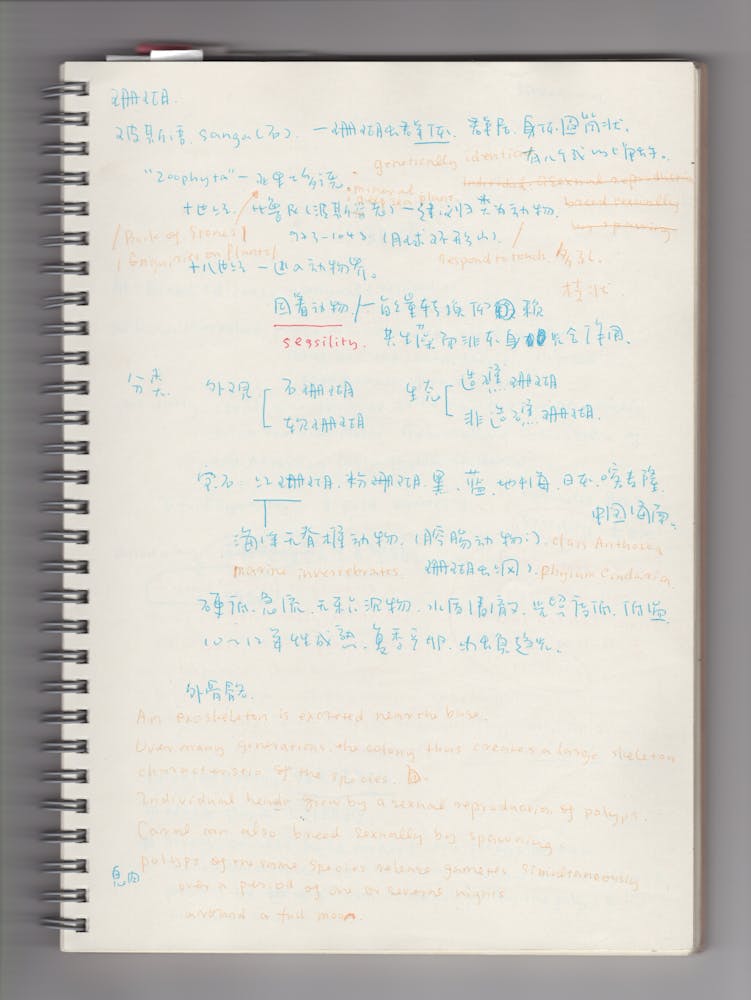 珊瑚.
波斯语 sanga(石). 一珊瑚虫群体. 群居. 身体圆筒状.
genetically identical 有八个或八以上触手.
"Zoophyta" — 亚里士多德 : mineral
deep sea plants Individual Asexual reproduction
十世纪 比鲁尼(波斯) — 建议归类为动物. based sexually
973-1048 (月球环形山) by spawning
/ Book of Stones /
/ Enquiries on Plants / respond to touch
十八世纪 — 进入动物界。
枝状
固着动物 能量转换 依赖
sessility. 共生藻而非本身光合作用.
分类 外观 石珊瑚 生态 造礁珊瑚
软珊瑚 非造礁珊瑚.
宝石: 红珊瑚. 粉珊瑚. 黑. 蓝. 地中海. 日本.
中国海南.
海洋无脊椎动物. (腔肠动物门). class Anthozoa
marine invertebrates. 珊瑚虫纲). phylum Cnidaria.
硬底. 急流. 无 沉物. 水质清
10~12年性成熟. 夏季产卵. 幼虫负趋光.
外骨骼.
An exoskeleton is excreted near the base.
Over many generations, the colony thus creates a large skeleton
characteristic of the species.
Individual heads grow by asexual reproduction of polyps.
Coral can also breed sexually by spawning
polyps of the same species release gametes simultaneously
over a period of one or several nights
around a full moon.